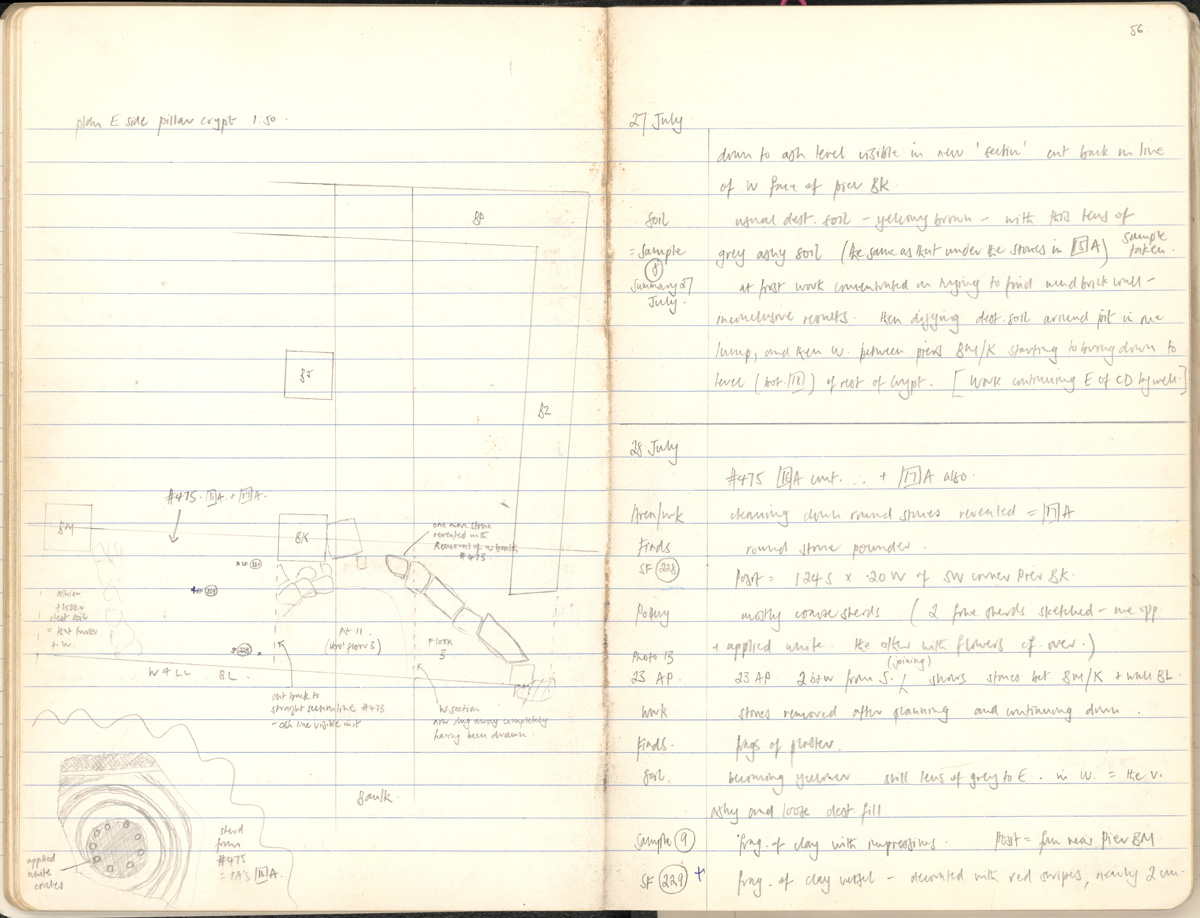 plan E side pillar crypt 1.50.
BP
BJ
BZ
#475. 15 A. + 17 A.
BM
BK
one more stone
revealed with
#473
x SF 230
SF 229
SF 228 x
ashier
+ looser
dest soil
+ W.
Pit 11
(
Floor
3
WALL BL.
cut back to
straight section line #473
- ash line visible in it
W. section
now dug away completely
having been drawn
Baulk.
sherd
from
#475
= PA's 16 A.
applied
white
circles
56.
27 July
down to ash level visible in new 'section' cut back on line
of W face of pier BK.
Soil
usual dest. soil - yellowy brown - with this lens of
= Sample 8
grey ashy soil (the same as that under the stones in 15 A) sample taken.
Summary 27 July.
at first work concentrated on trying to find mud brick wall -
inconclusive results. then digging dest. soil around pit in one
lump, and then W. between piers BM/K starting to bring down to
level (bot. 18) of rest of crypt. [Work continuing E of CD by well.]
28 July
#475 16 A cont. . . + 17 A also.
Area/wk
cleaning down round stones revealed = 17 A
Finds
round stone pounder.
SF 228
Posit = 1.24 S x .20 W of SW corner Pier BK.
Pottery
mostly coarse sherds (2 fine sherds sketched - one opp.
+ applied white. the other with flowers cf. over.)
Photo 13
23 AP.
23 AP 2 b+w from S. (joining) shows stones bet. BM/K + wall BL.
Work
stones removed after planning and continuing down.
Finds.
frags of plaster.
Soil.
becoming yellower still lens of grey to E. in W. = the v.
ashy and loose dest. fill
Sample 9
frag. of clay with impressions. Posit = from near Pier BM
SF 229 +
frag. of clay vessel - decorated with red stripes, nearly 2 cm-